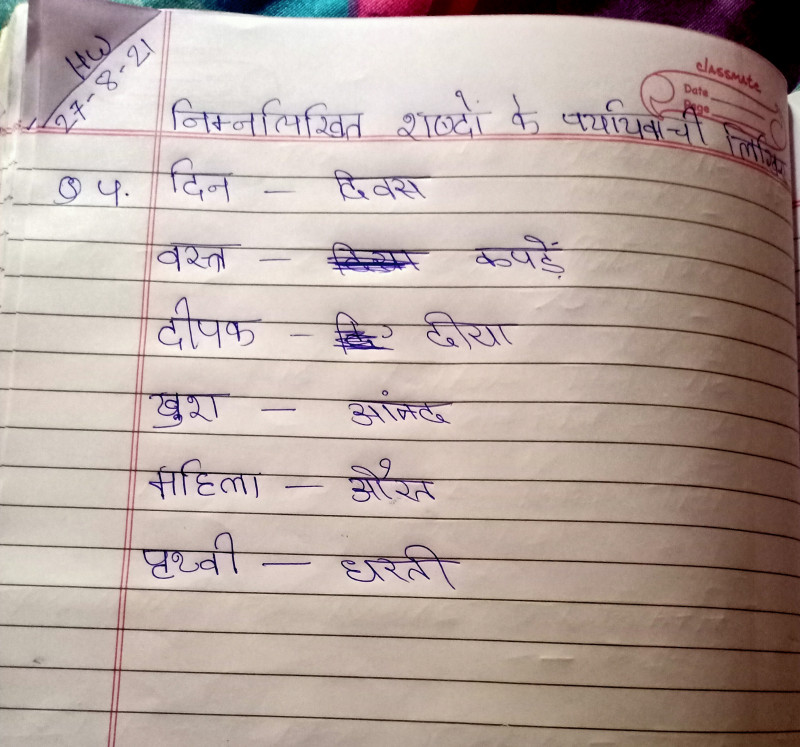 HW
27-8-21
classmate
Date
Page
निम्नलिखित शब्दों के पर्यायवाची
Q 4. दिन - दिवस
वस्त्र - कपड़ें
दीपक - दीया
खुश - आंनद
महिला - औरत
पृथ्वी - धरती